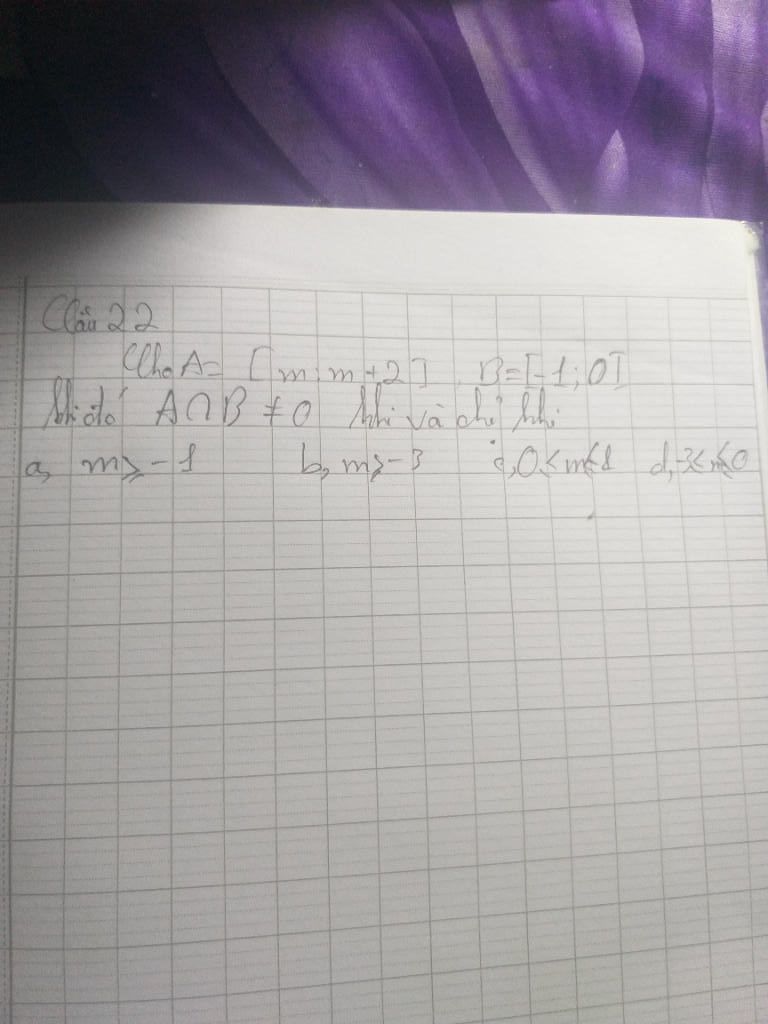 Câu 22
Cho A= [m; m+2] , B=[-1;0]
khi đó A∩B ≠ 0 khi và chỉ khi
a, m≥-1 b, m≥-3 c, 0≤m≤1 d, -3≤m≤0